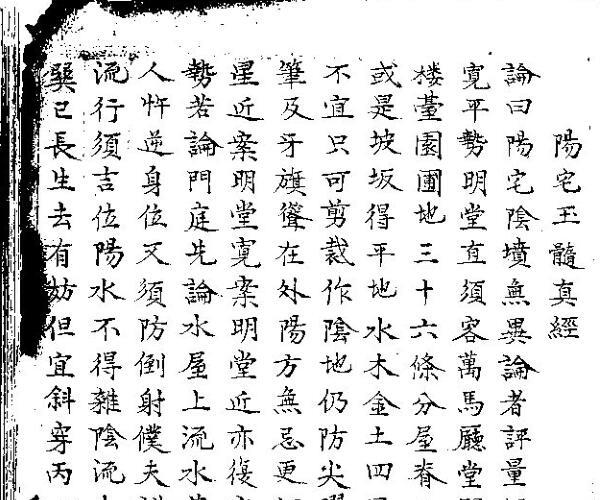 陽宅玉髓真經
論曰陽宅陰墳無異論者評量
寬平勢明堂直須客萬馬廳堂
楼䑓園圃地三十六條分屋脊
或是坡坂得平地水木金土四
不宜只可剪裁作陰地仍防尖
筆及牙旗聳在外陽方無忌更
星近案明堂寬案明堂近亦復
勢若論門庭先論水屋上流水
人忤逆身位又須防倒射僕夫
流行須吉位陽水不得雜陰流
巽巳長生去有妨但宜斜穿丙